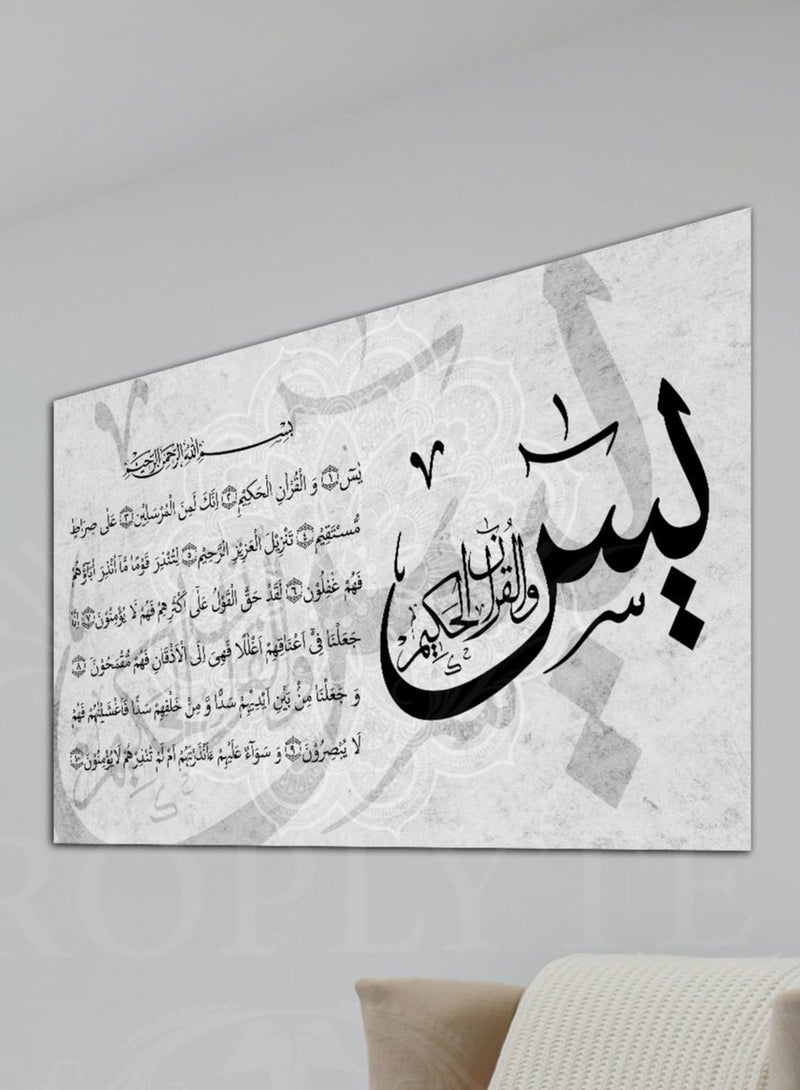 بِسْمِ اللهِ الرَّحْمٰنِ الرَّحِيْمِ
يٰسٓ ۝١ وَ الْقُرْاٰنِ الْحَكِيْمِ ۝٢ اِنَّكَ لَمِنَ الْمُرْسَلِيْنَ ۝٣ عَلٰى صِرَاطٍ
مُّسْتَقِيْمٍ ۝٤ تَنْزِيْلَ الْعَزِيْزِ الرَّحِيْمِ ۝٥ لِتُنْذِرَ قَوْمًا مَّاۤ اُنْذِرَ اٰبَآؤُهُمْ
فَهُمْ غٰفِلُوْنَ ۝٦ لَقَدْ حَقَّ الْقَوْلُ عَلٰۤى اَكْثَرِهِمْ فَهُمْ لَا يُؤْمِنُوْنَ ۝٧ اِنَّا
جَعَلْنَا فِىْۤ اَعْنَاقِهِمْ اَغْلٰلًا فَهِىَ اِلَى الْاَذْقَانِ فَهُمْ مُّقْمَحُوْنَ ۝٨
وَ جَعَلْنَا مِنْۢ بَيْنِ اَيْدِيْهِمْ سَدًّا وَّ مِنْ خَلْفِهِمْ سَدًّا فَاَغْشَيْنٰهُمْ فَهُمْ
لَا يُبْصِرُوْنَ ۝٩ وَ سَوَآءٌ عَلَيْهِمْ ءَاَنْذَرْتَهُمْ اَمْ لَمْ تُنْذِرْهُمْ لَا يُؤْمِنُوْنَ ۝١٠
يٰسٓ
وَالْقُرْآنِ الْحَكِيمِ
ROPLYTE